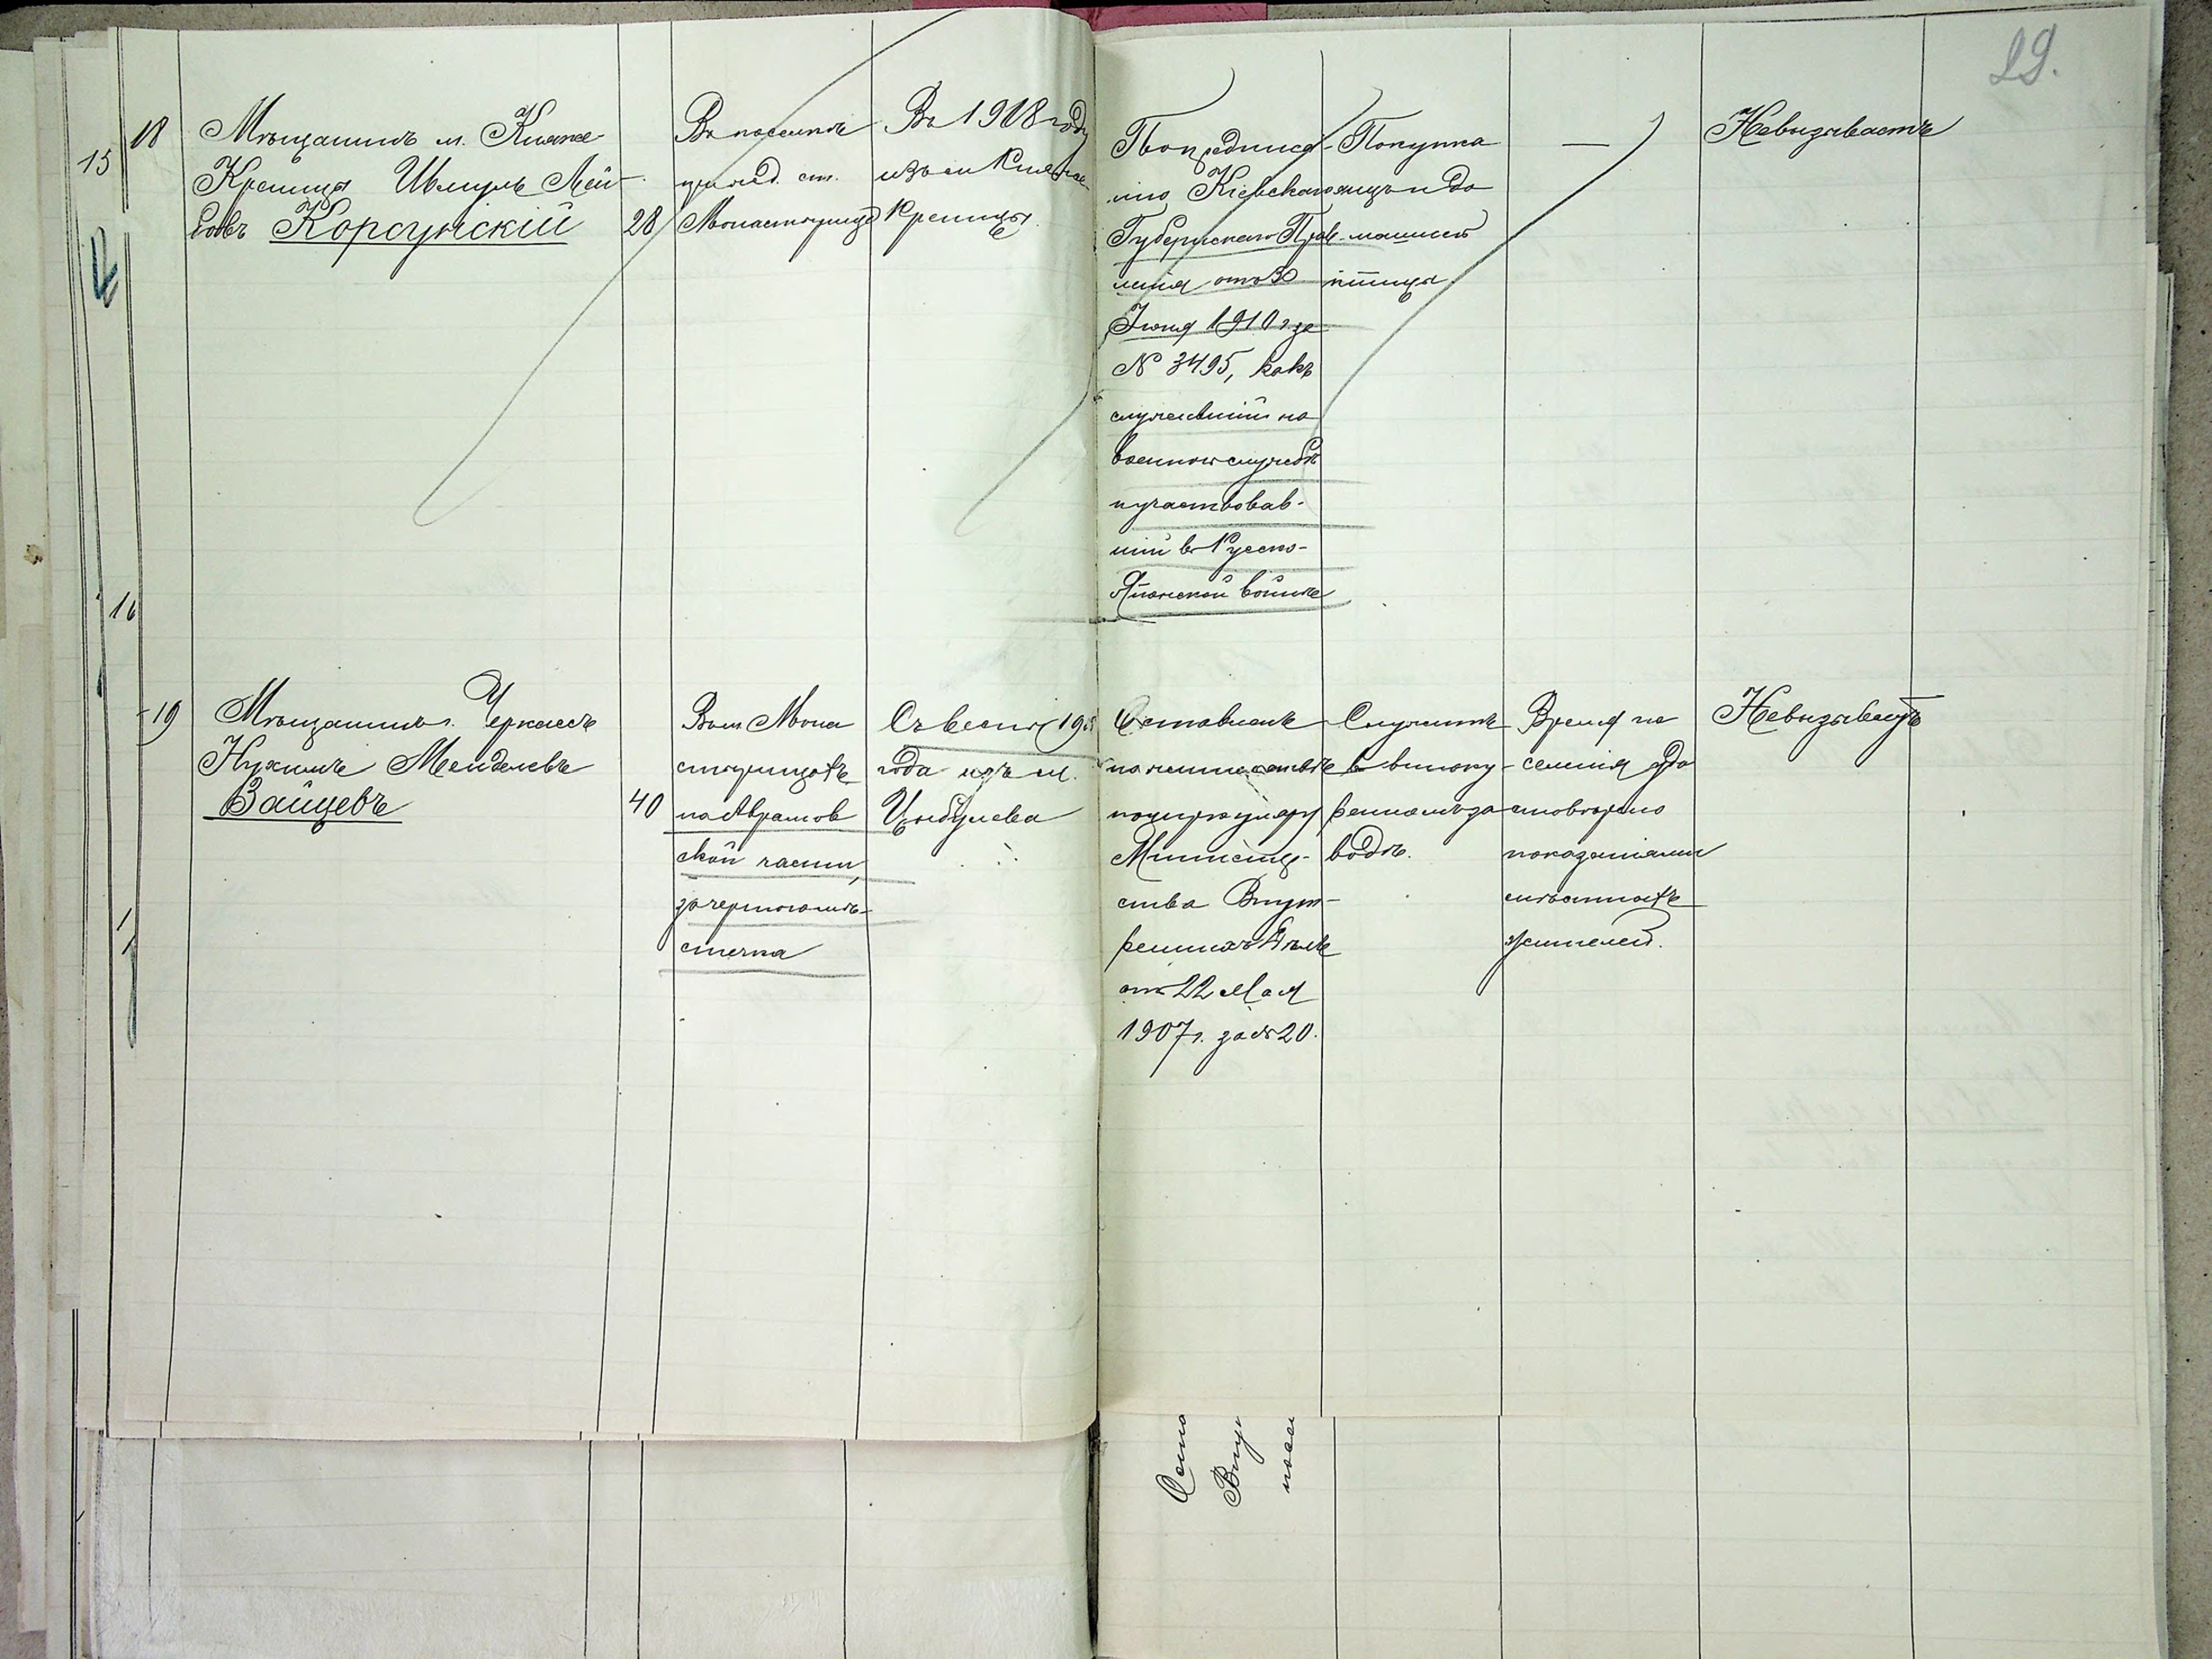 29.
15
18
Мѣщанинъ м. Княже-
Креница Шмуль Лей-
бовъ Корсунскій
28
Въ поселкѣ
при жел. ст.
Монастырище
Въ 1908 году
изъ м Княже-
Креницы.
По предписа-
нію Кіевскаго
Губернскаго Прав-
ленія отъ 30
Іюня 1910 г за
№ 3495, какъ
служившій на
военной службѣ
и участвовав-
шій въ Русско-
Японской войнѣ
Покупка
яицъ и до
машней
птицы
—
Невызываетъ
16
19
Мѣщанинъ г. Черкассъ
Нухимъ Менделевъ
Зайцевъ
40
Въ м Мона
стырищѣ
на Аврамов
ской части,
за чертою мѣ-
стечка
Съ весны 1905
года изъ м.
Цыбулева
Оставленъ
на жительствѣ
по циркуляру
Министер-
ства Внут-
реннихъ Дѣлъ
отъ 22 Мая
1907 г. за № 20.
Служитъ
въ виноку-
ренномъ за
водѣ.
Время по
селенія удо
стовѣрено
показаніями
мѣстныхъ
жителей.
Невызываетъ
Оста
Внут
посе